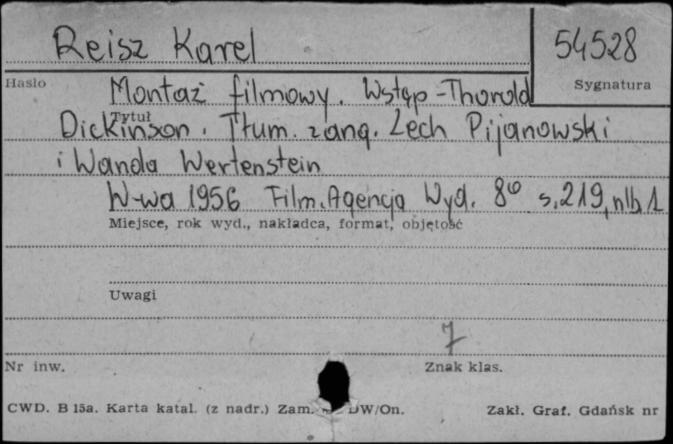 Reisz Karel
54528
Hasło
Sygnatura
Montaż filmowy. Wstęp - Thorold
Tytuł
Dickinson. Tłum. z ang. Lech Pijanowski
i Wanda Wertenstein
W-wa 1956 Film. Agencja Wyd. 8° s. 219, nlb. 1
Miejsce, rok wyd., nakładca, format, objętość
Uwagi
7
Nr inw.
Znak klas.
CWD. B 15a. Karta katal. (z nadr.) Zam. DW/On.
Zakł. Graf. Gdańsk nr